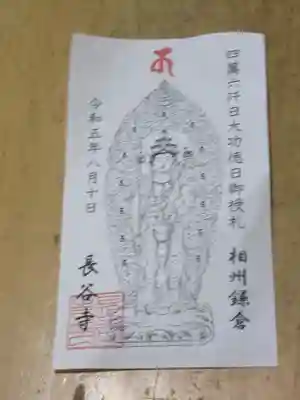 四萬六仟日大功徳日御授札
相州鎌倉
令和五年八月十日
長谷寺